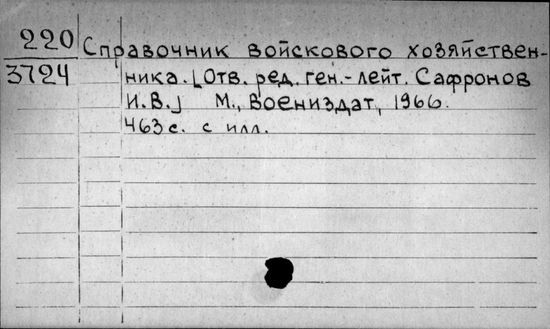 220
3724
Справочник войскового хозяйствен-
ника. [Отв. ред. ген.-лейт. Сафронов
И.В.] М., Воениздат, 1966.
463 с. с илл.